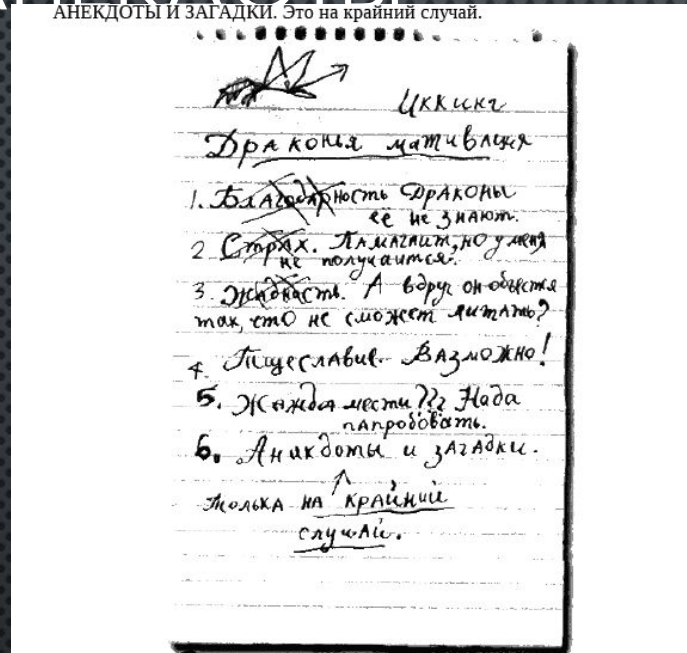 АНЕКДОТЫ И ЗАГАДКИ. Это на крайний случай.
Иккинг
Драконья мативация
1. Благодарность Драконы
её не знают.
2. Страх. Памагаит, но у меня
не получаится.
3. Жадность. А вдруг он объестся
так, что не сможет литать?
4. Тщеславие. Вазможно!
5. Жажда мести??? Нада
папробовать.
6. Анакдоты и загадки.
толька на крайний
случай.